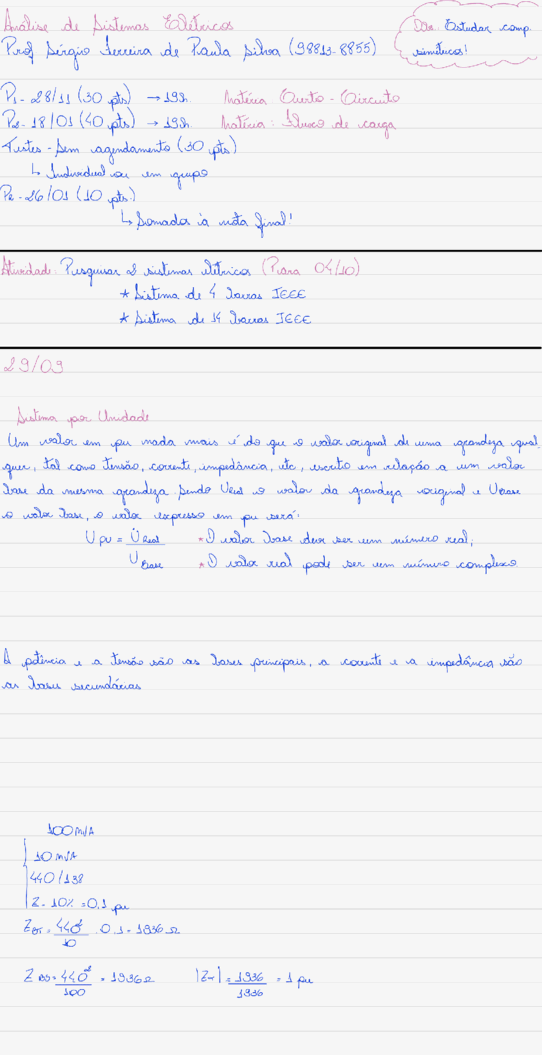 Análise de Sistemas Elétricos
Prof Sérgio Ferreira de Paula Silva (98813-8855)
Obs: Estudar comp.
simétricos!
P1 - 28/11 (30 pts) → 19h. Matéria Curto-Circuito
P2 - 18/01 (40 pts) → 19h. Matéria: Fluxo de carga
Testes - Sem agendamento (30 pts)
↳ Individual ou em grupo
PR - 26/01 (10 pts)
↳ Somados à nota final!
Atividade: Pesquisar 2 sistemas elétricos (Para 04/10)
* Sistema de 4 barras IEEE
* Sistema de 14 barras IEEE
29/09
Sistema por Unidade
Um valor em pu nada mais é do que o valor original de uma grandeza qual-
quer, tal como tensão, corrente, impedância, etc, escrito em relação a um valor
base da mesma grandeza. Sendo Ureal o valor da grandeza original e Ubase
o valor base, o valor expresso em pu será:
Upu = U̇Real / UBase
* O valor base deve ser um número real;
* O valor real pode ser um número complexo
A potência e a tensão são as bases principais, a corrente e a impedância são
as bases secundárias
100 MVA
10 MVA
440/138
Z = 10% = 0.1 pu
ZBT = 440²/10 . 0.1 = 1936 Ω
= 440²/100 = 1936 Ω |ZT| = 1936/1936 = 1 pu